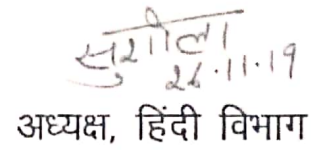 सुशीला
26.11.19
अध्यक्ष, हिंदी विभाग